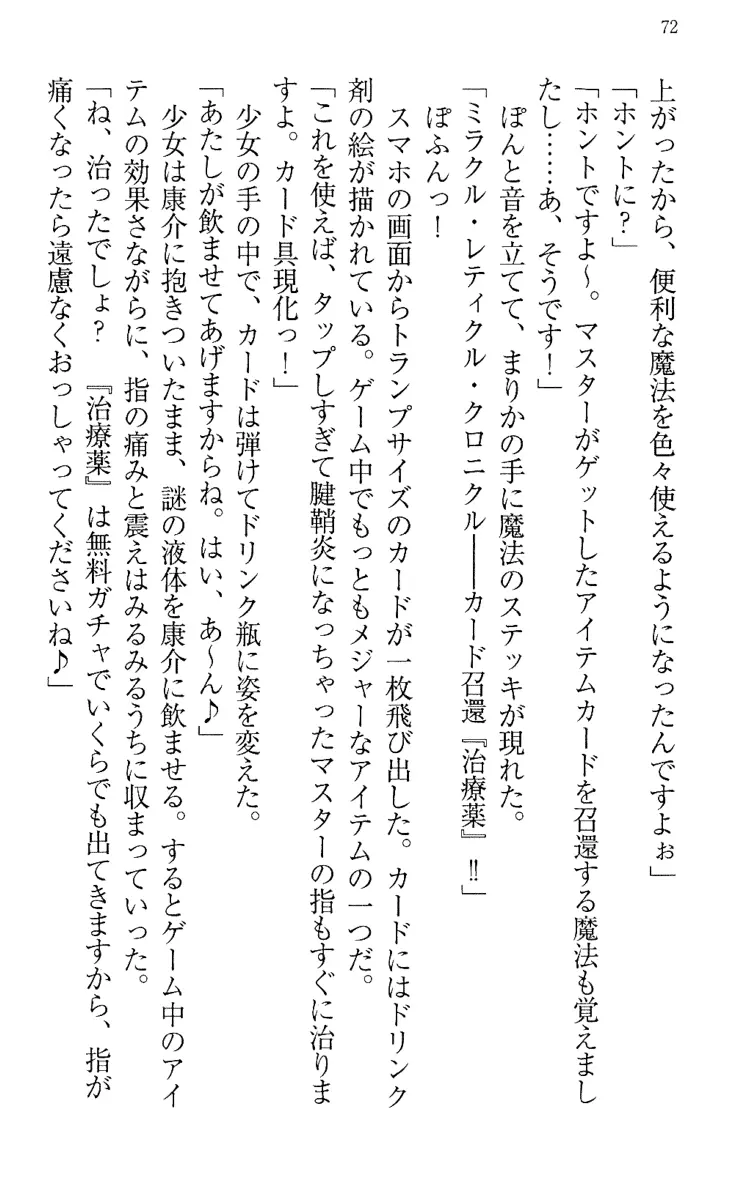 72
上がったから、便利な魔法を色々使えるようになったんですよぉ」
「ホントに？」
「ホントですよ～。マスターがゲットしたアイテムカードを召還する魔法も覚えまし
たし……あ、そうです！」
ぽんと音を立てて、まりかの手に魔法のステッキが現れた。
「ミラクル・レティクル・クロニクル――カード召還『治療薬』‼」
ぽふんっ！
スマホの画面からトランプサイズのカードが一枚飛び出した。カードにはドリンク
剤の絵が描かれている。ゲーム中でもっともメジャーなアイテムの一つだ。
「これを使えば、タップしすぎて腱鞘炎になっちゃったマスターの指もすぐに治りま
すよ。カード具現化っ！」
少女の手の中で、カードは弾けてドリンク瓶に姿を変えた。
「あたしが飲ませてあげますからね。はい、あ～ん♪」
少女は康介に抱きついたまま、謎の液体を康介に飲ませる。するとゲーム中のアイ
テムの効果さながらに、指の痛みと震えはみるみるうちに収まっていった。
「ね、治ったでしょ？　『治療薬』は無料ガチャでいくらでも出てきますから、指が
痛くなったら遠慮なくおっしゃってくださいね♪」